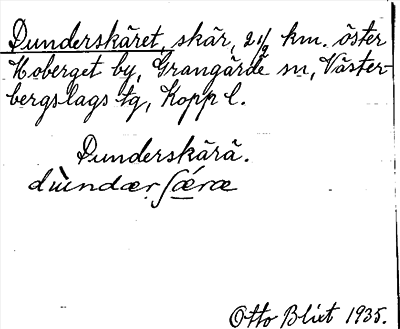 Dunderskäret, skär, 2 1/2 km. öster
Hoberget by, Grangärde sn, Väster-
bergslags tg, Kopp l.
Dunderskärä.
dùndær ʃæ̣ræ
Otto Blixt 1935.